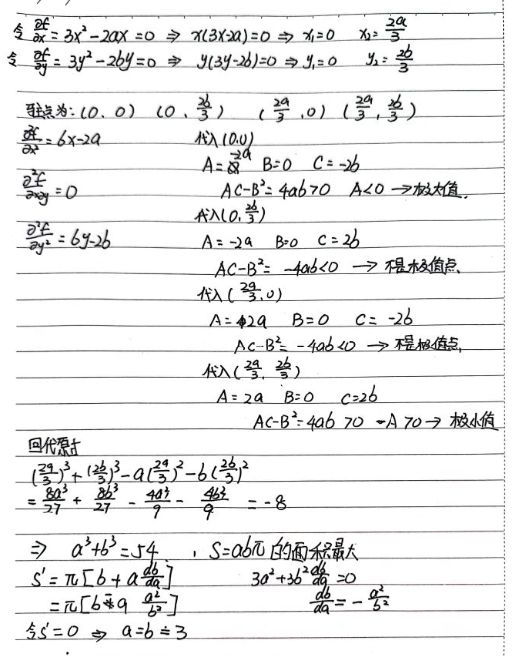 令 ∂f/∂x = 3x² - 2ax = 0 ⇒ x(3x-2a)=0 ⇒ x₁=0 x₂=2a/3
令 ∂f/∂y = 3y² - 2by=0 ⇒ y(3y-2b)=0 ⇒ y₁=0 y₂=2b/3
驻点为: (0, 0) (0, 2b/3) (2a/3, 0) (2a/3, 2b/3)
∂²f/∂x² = 6x-2a 代入(0,0)
A=-2a B=0 C=-2b
∂²f/∂x∂y = 0 AC-B²=4ab>0 A<0 →极大值.
代入(0, 2b/3)
∂²f/∂y² = 6y-2b A=-2a B=0 C=2b
AC-B²= -4ab<0 → 不是极值点.
代入(2a/3, 0)
A=2a B=0 C= -2b
AC-B²= -4ab<0 → 不是极值点.
代入(2a/3, 2b/3)
A=2a B=0 C=2b
AC-B²=4ab >0 A>0 → 极小值
回代原式
(2a/3)³+(2b/3)³-a(2a/3)²-b(2b/3)²
= 8a³/27 + 8b³/27 - 4a³/9 - 4b³/9 = -8
⇒ a³+b³=54 , S=abπ 的面积最大
S'=π[b+a db/da] 3a²+3b² db/da=0
=π[b-a a²/b²] db/da = - a²/b²
令S'=0 ⇒ a=b=3